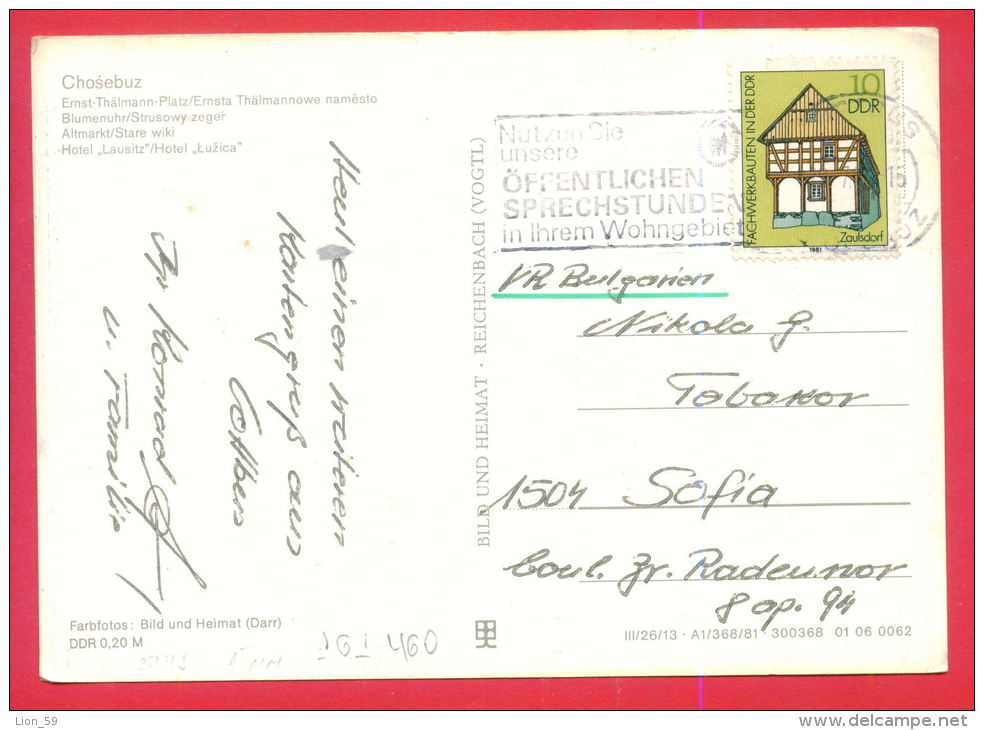 Chośebuz
Ernst-Thälmann-Platz/Ernsta Thälmannowe naměsto
Blumenuhr/Strusowy zegeŕ
Altmarkt/Stare wiki
Hotel „Lausitz"/Hotel „Łužica"
einen weiteren
Kartengruß aus
Cottbus
Ihr Konrad
u. Familie
Farbfotos: Bild und Heimat (Darr)
DDR 0,20 M
161 460
BILD UND HEIMAT · REICHENBACH (VOGTL)
Nutzen Sie
unsere
ÖFFENTLICHEN
SPRECHSTUNDEN
in Ihrem Wohngebiet
10
DDR
FACHWERKBAUTEN IN DER DDR
Zaulsdorf
1981
VR Bulgarien
Nikola G.
Tabakov
1504 Sofia
boul. Zr. Radeunov
8 ap. 94
III/26/13 · A1/368/81 · 300368 01 06 0062
Lion_59
www.delcampe.net